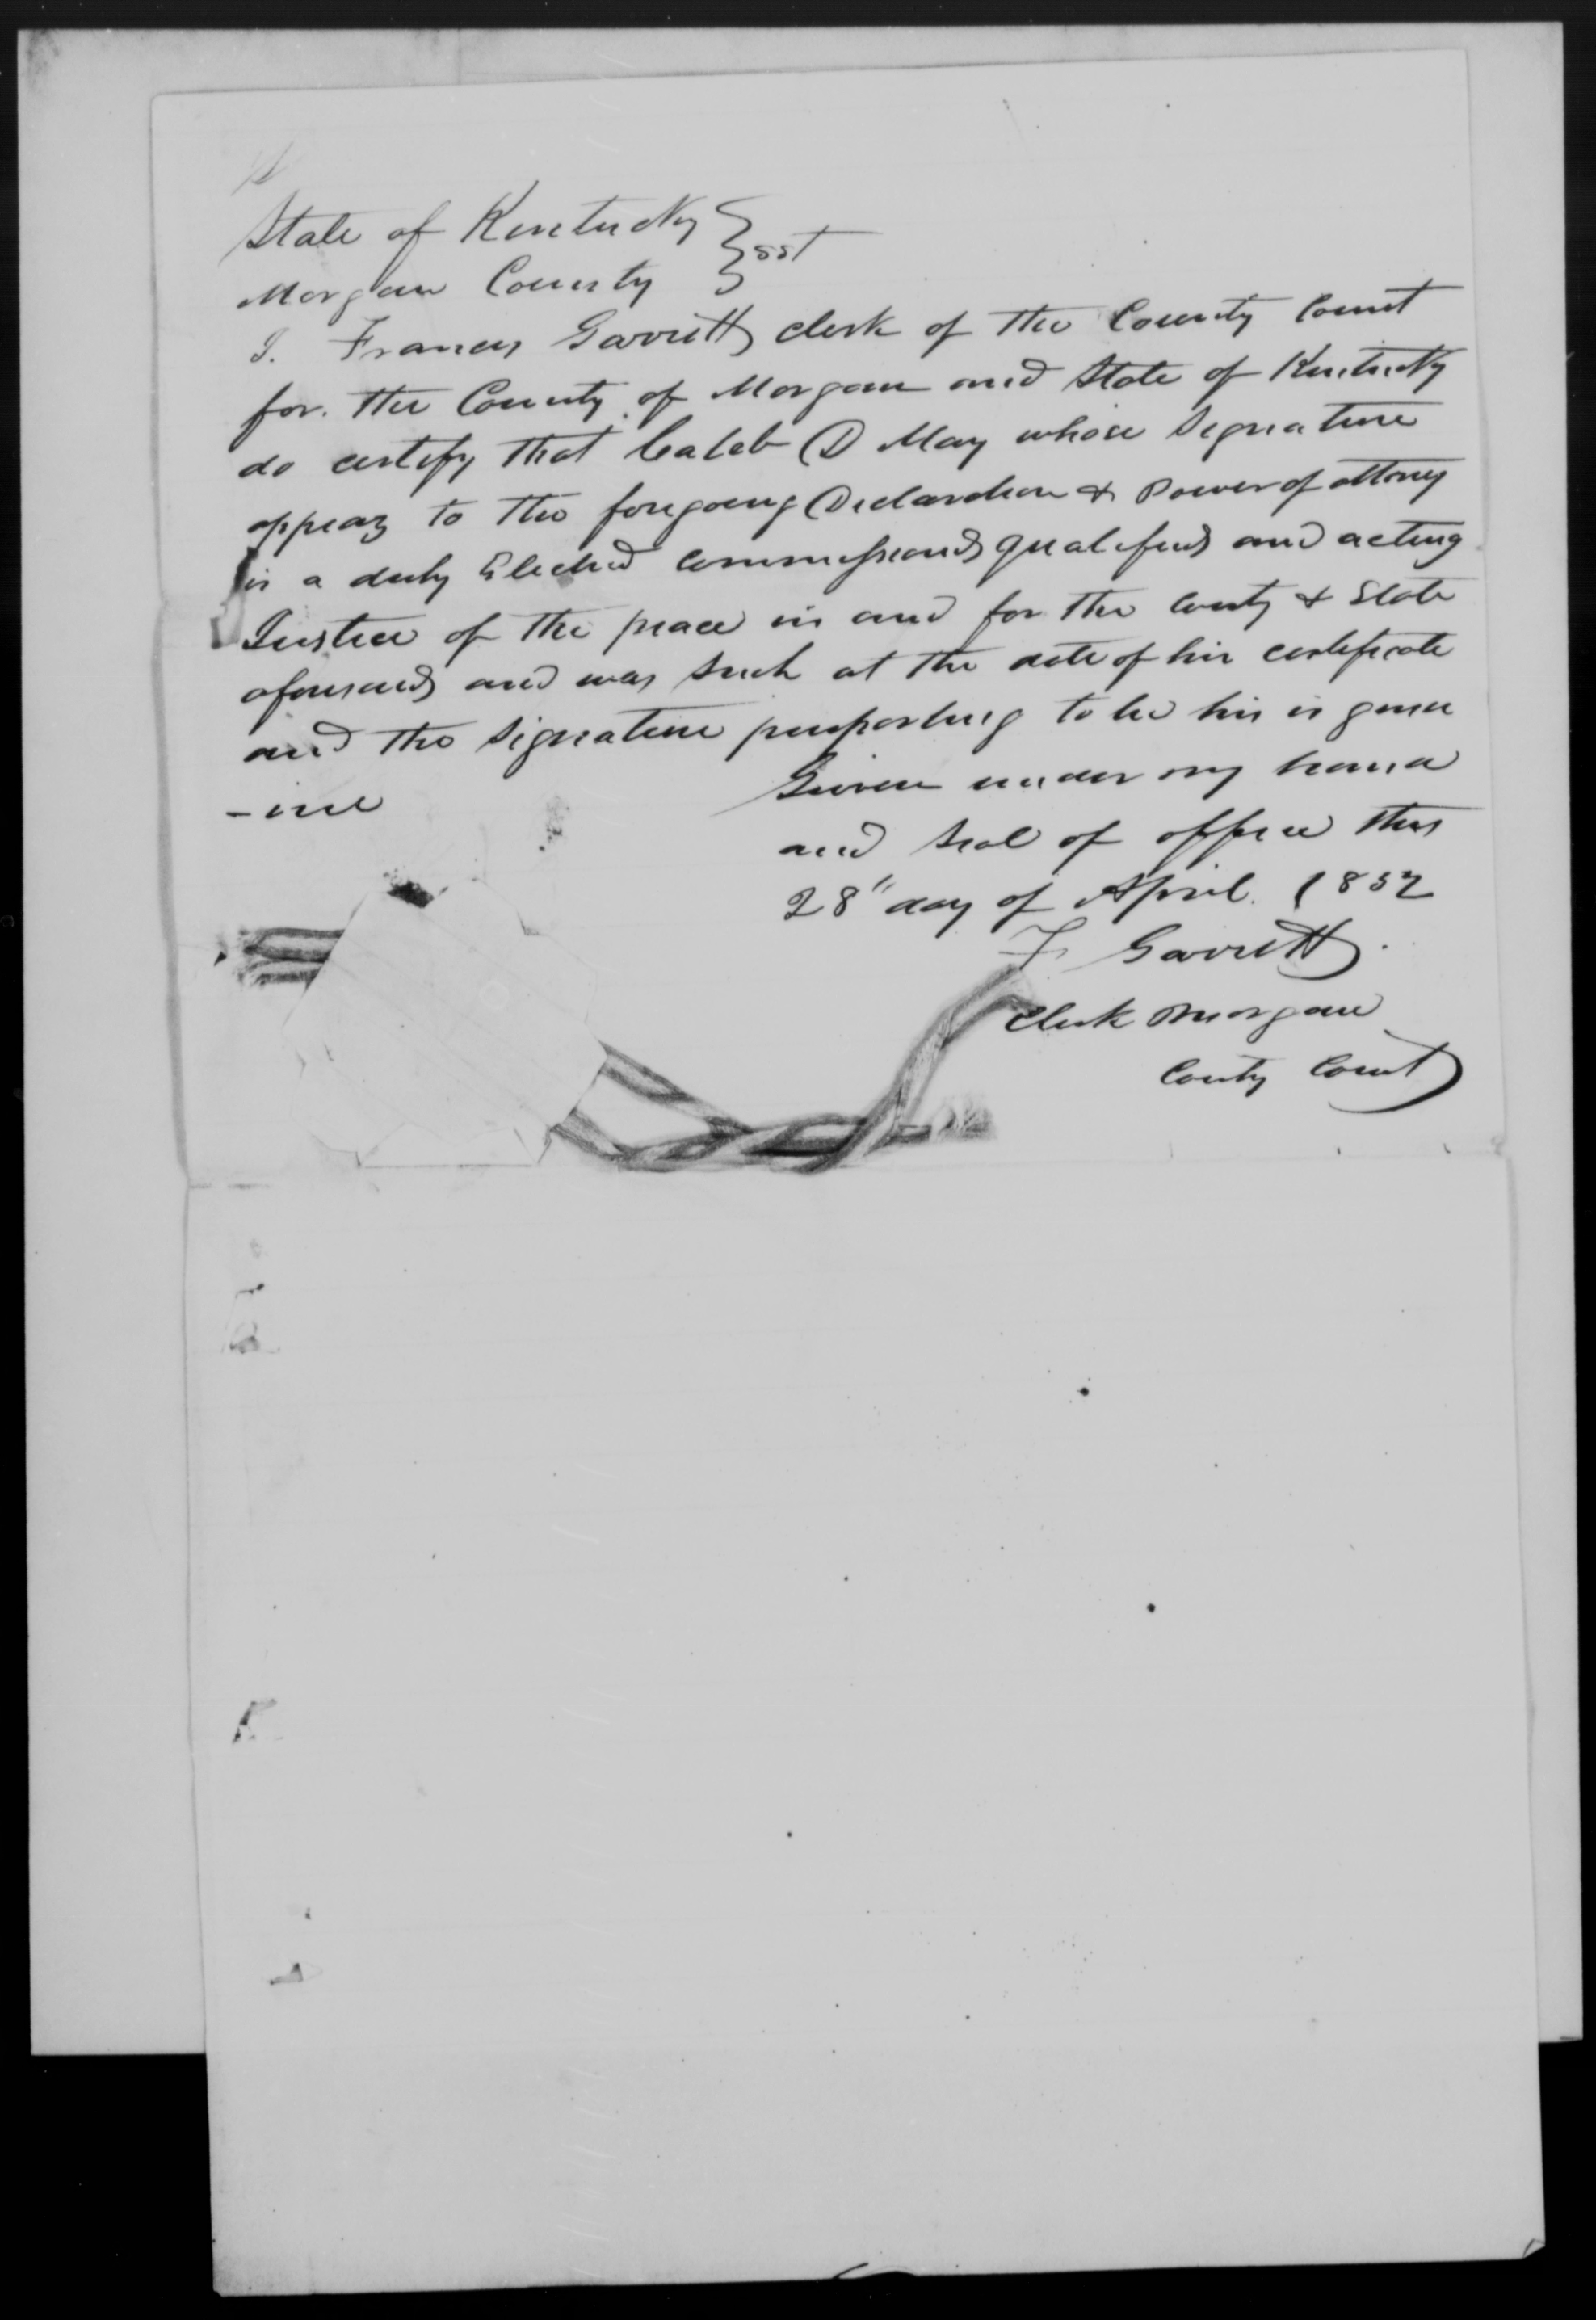 State of Kentucky } sst
Morgan County
I. Francis Garrett clerk of the County Court
for. the County of Morgan and State of Kentucky
do certify that Caleb D May whose Signature
appears to the foregoing Declaration & Power of attorney
is a duly Elected commissioned qualified and acting
Justice of the peace in and for the County & State
aforesaid and was Such at the date of his certificate
and the Signature purporting to be his is genu
-ine
Given under my hand
and Seal of office this
28" day of April. 1852
F Garrett.
Clerk Morgan
County Court